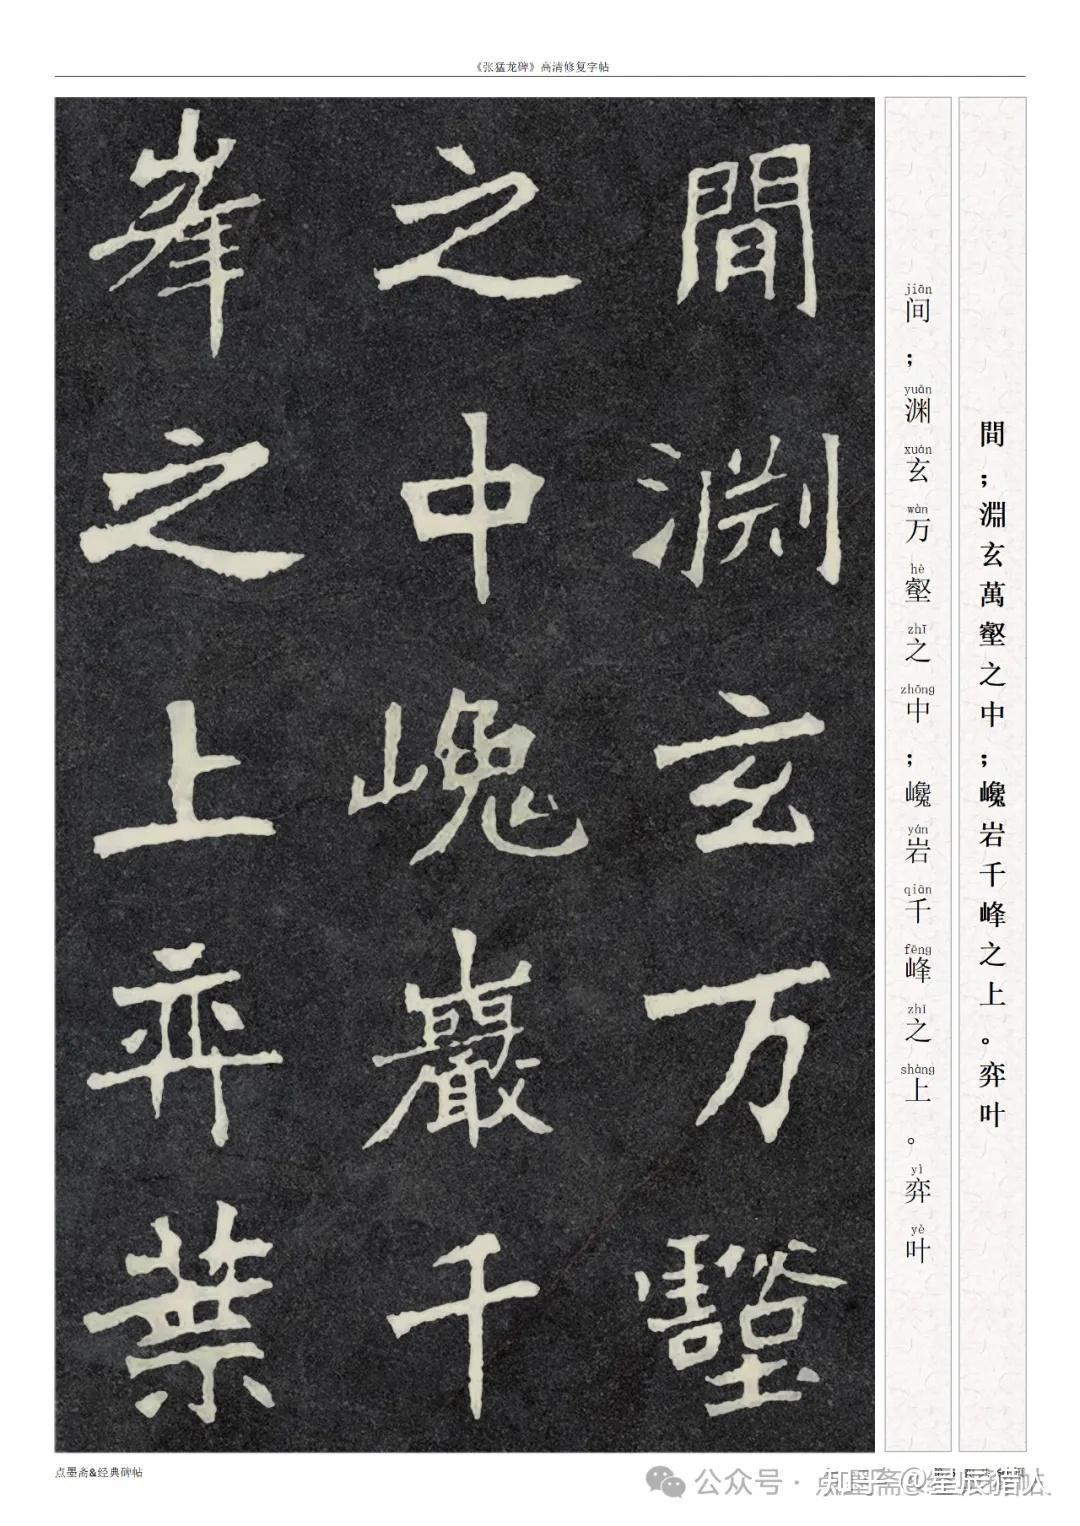 《张猛龙碑》高清修复字帖
間；淵玄萬壑之中；巉岩千峰之上。弈叶
jiān yuān xuán wàn hè zhī zhōng yán qiān fēng zhī shàng yì yè
间；渊玄万壑之中；巉岩千峰之上。弈叶
間渊玄万壑
之中巉巖千
峯之上弈葉
点墨斋&经典碑帖
公众号·点墨斋
知乎 @星辰猎帖